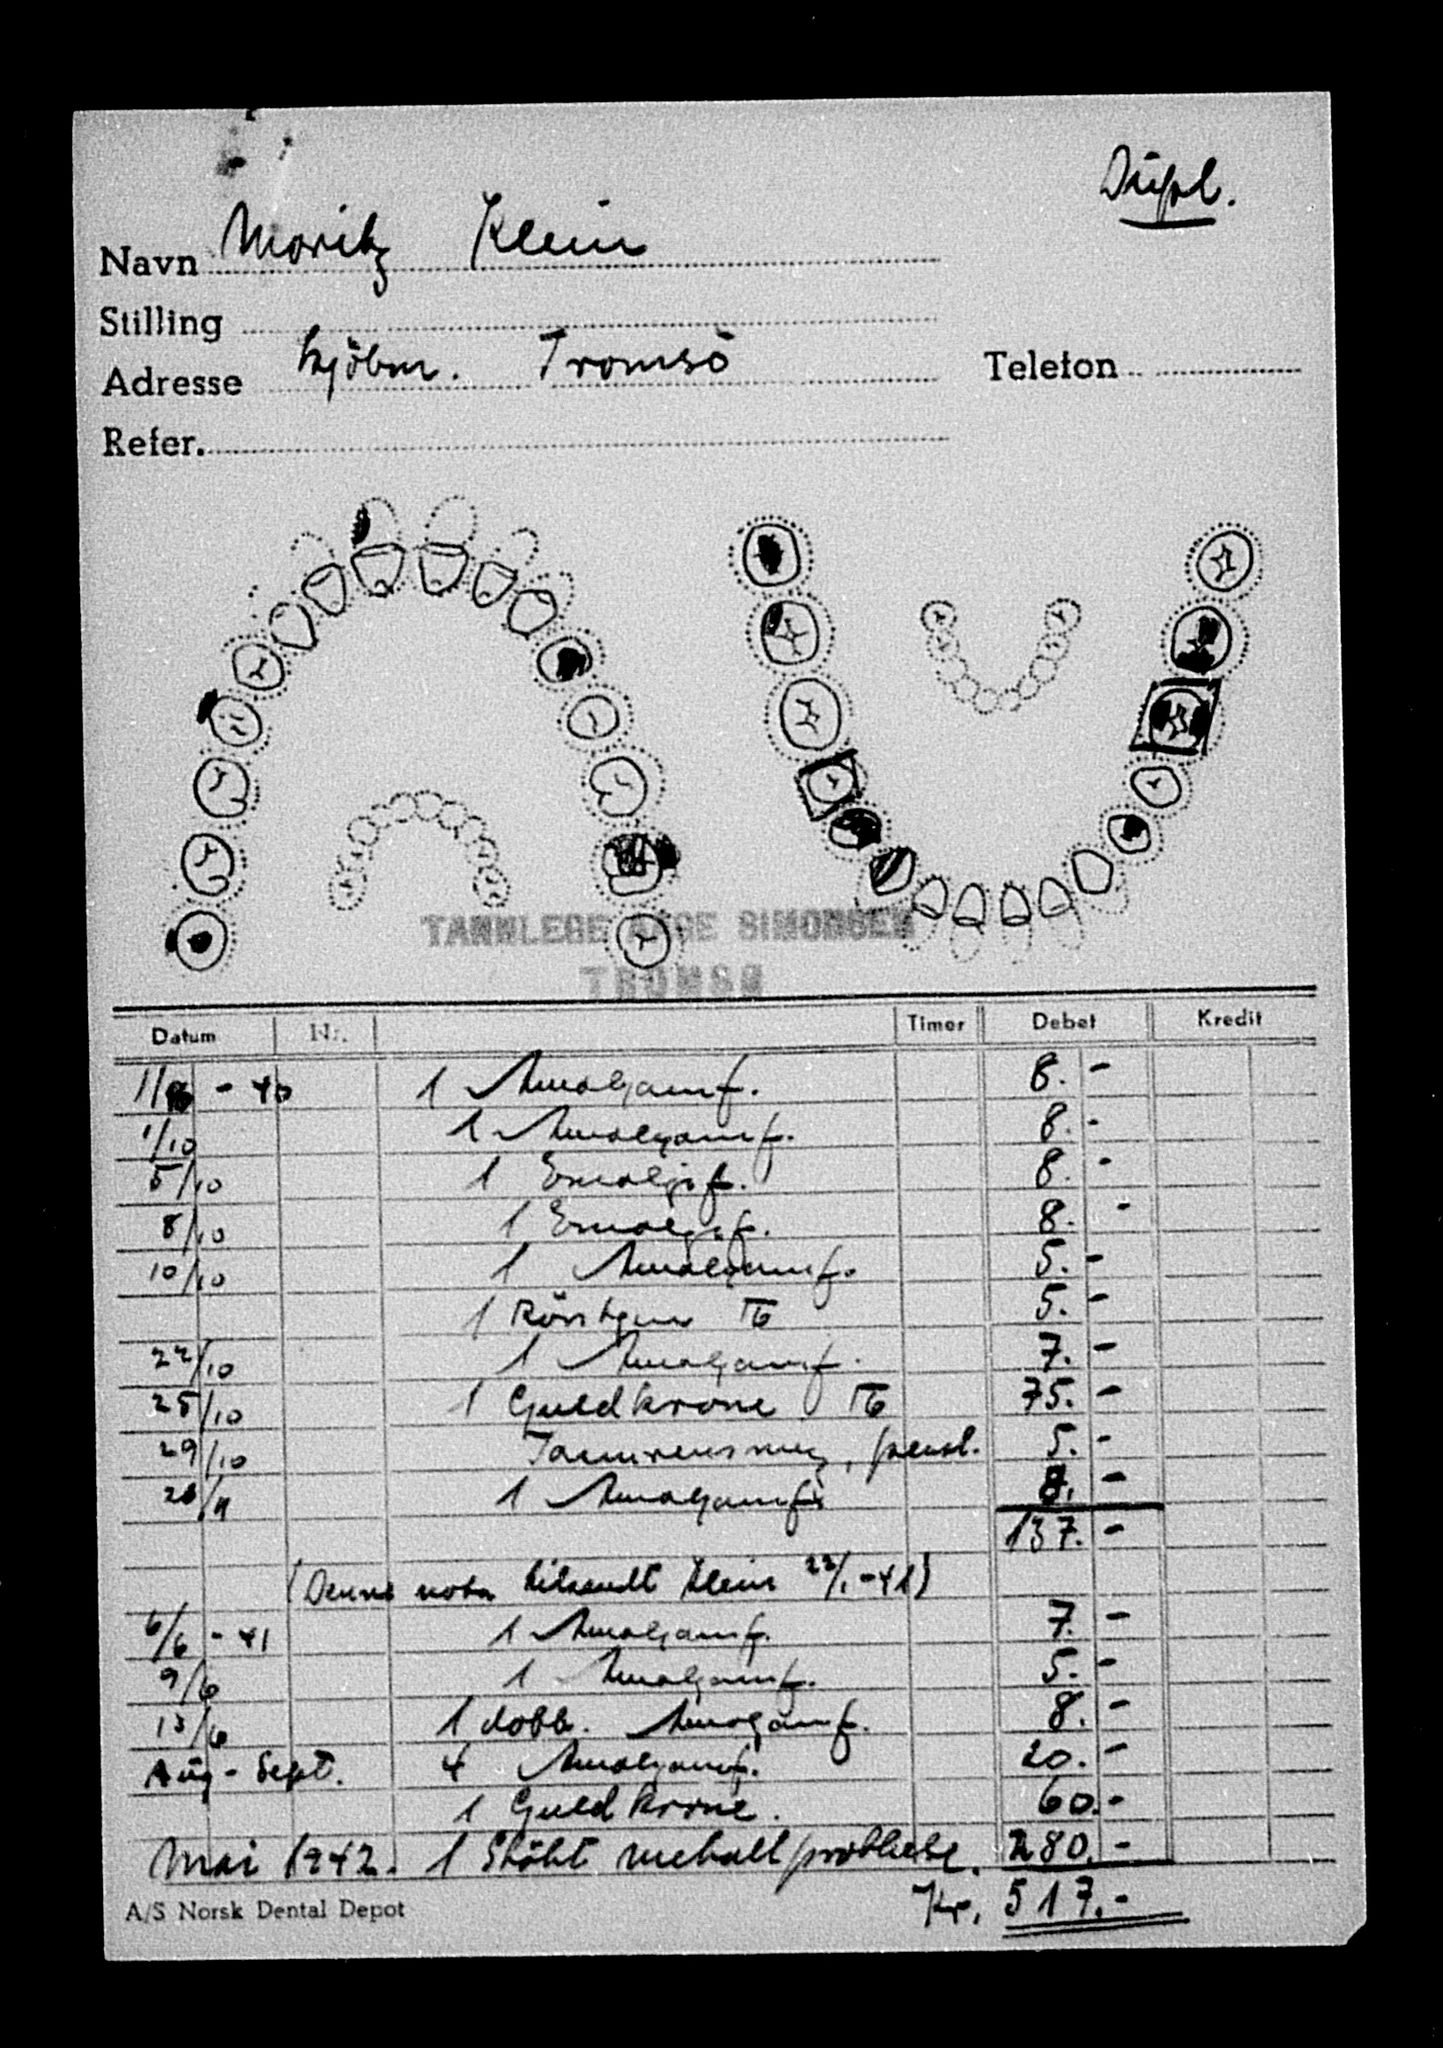 Dupl.
Navn Moritz Klein
Stilling
Adresse kjöbm. Tromsö Telefon
Refer.
TANNLEGE AAGE SIMONSEN
TROMSØ
Datum Nr. Timer Debet Kredit
1/10 - 40 1 Amalgamf. 8. -
1/10 1 Amalgamf. 8. -
5/10 1 Emaljef. 8. -
8/10 1 Emaljef. 8. -
10/10 1 Amalgamf. 5. -
1 Röntgen 5. -
22/10 1 Amalgamf. 7. -
25/10 1 Guldkrone 75. -
29/10 Tannrensning, pensl. 5. -
1 Amalgamf. 8. -
137. -
(Denne nota tilsendt Klein 22/1 - 41)
6/6 - 41 1 Amalgamf. 7. -
9/6 1 Amalgamf. 5. -
13/6 1 dobb. Amalgamf. 8. -
Aug - Sept. 4 Amalgamf. 20. -
1 Guldkrone. 60. -
Mai 1942. 1 Stöbt metall 280. -
A/S Norsk Dental Depot Kr. 517. -